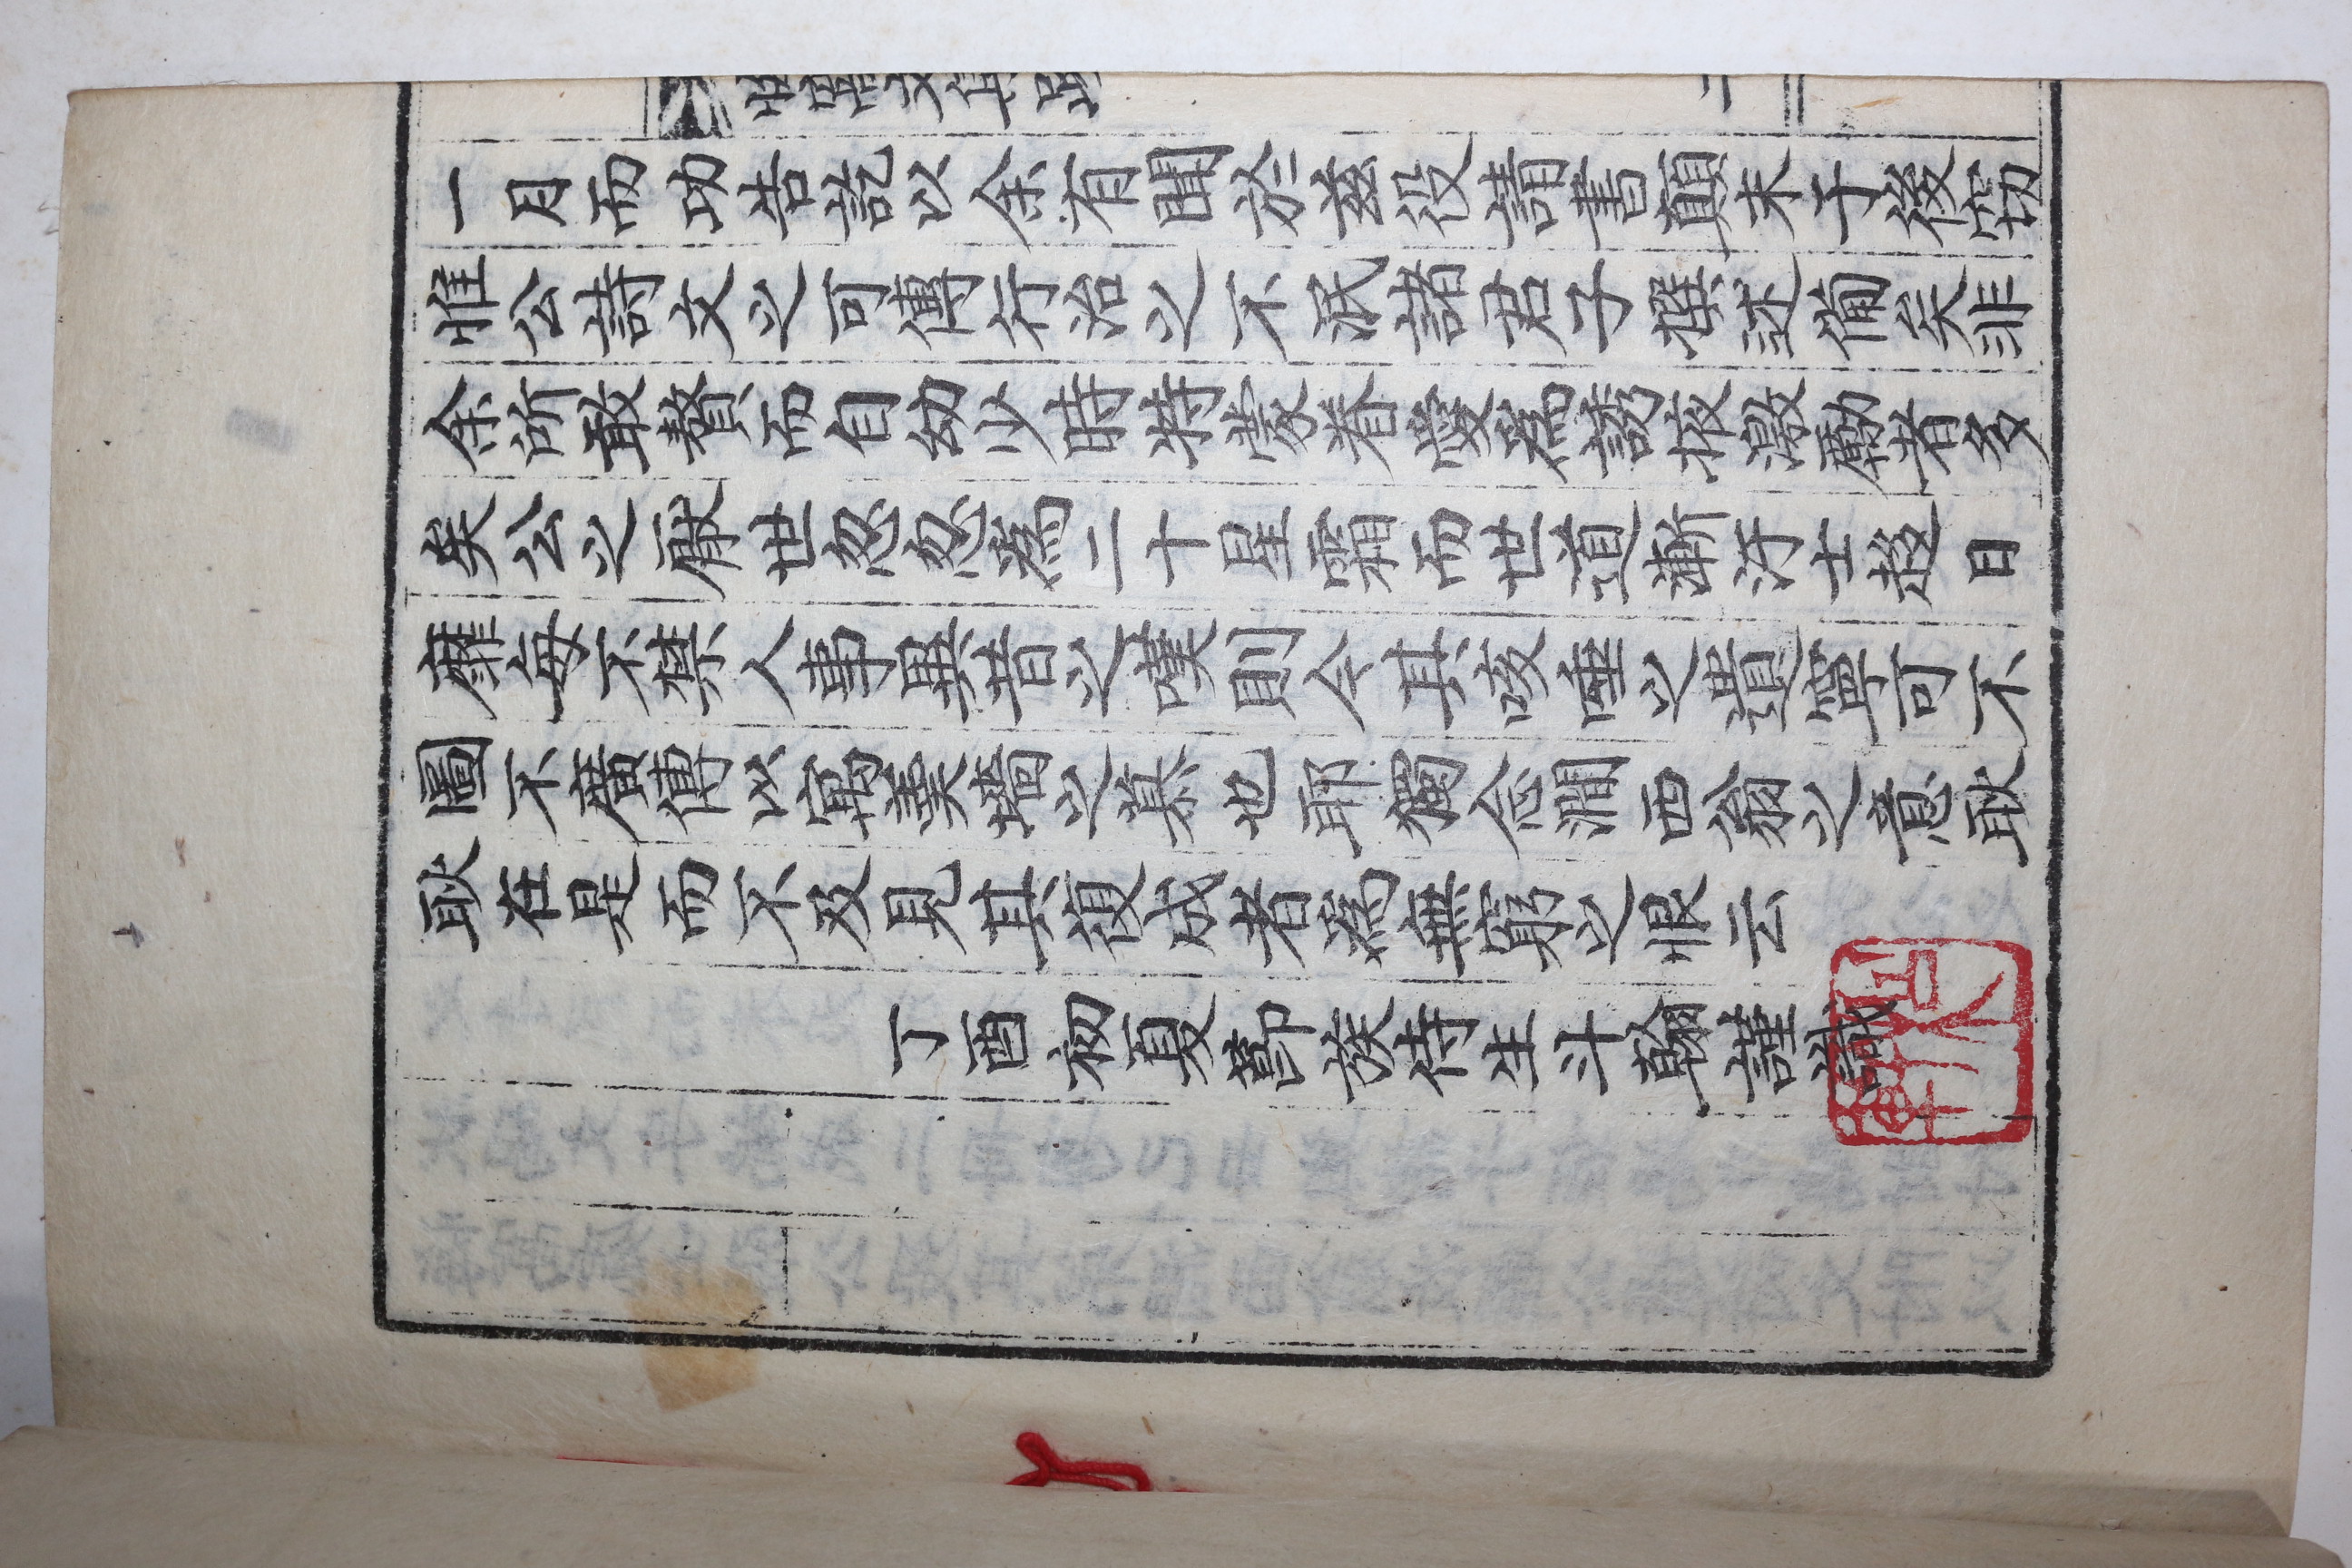 一月而功告訖以余有聞於茲役請書顛末于後窃
惟公詩文之可傳行治之不泯諸君子撰述備矣非
余所敢贅而自幼少時特蒙眷愛爲誘掖激勵者多
矣公之厭世忽忽爲二十星霜而世道漸汙士趍日
靡每不禁人事異昔之嘆則今其咳唾之遺寧可不
圖不廣傳以寓羹墻之慕也耶獨念澗西翁之意耿
耿在是而不及見其復成者爲無窮之恨云
丁酉初夏莭族侍生斗翰謹識
文集跋
二
軒